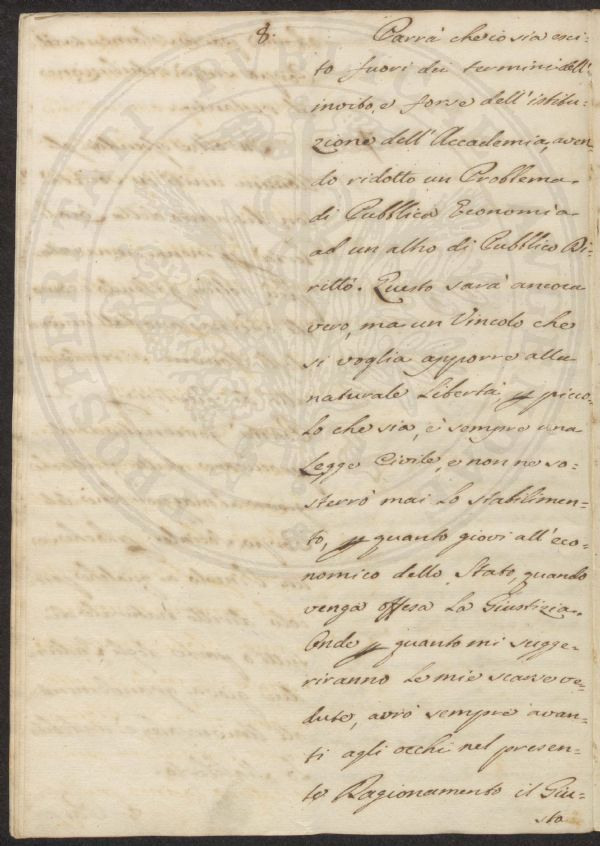 8.
Parrà che io sia esci=
to fuori dei termini dell'
invito, e forse dell'istitu=
zione dell'Accademia, aven=
do ridotto un Problema
di Pubblica Economia
ad un altro di Pubblico Di=
ritto. Questo sarà ancora
vero, ma un Vincolo che
si voglia apporre alla
naturale Libertà, p piccο=
lo che sia, è sempre una
Legge Civile, e non ne so=
sterrò mai lo stabilimen=
to, p quanto giovi all'eco=
nomico dello Stato, quando
venga offesa la Giustizia.
Onde p quanto mi sugge=
riranno le mie scarse ve=
dute, avrò sempre avan=
ti agli occhi nel presen=
te Ragionamento il Giu=
sto
PROSPERITATI PUBLICAE